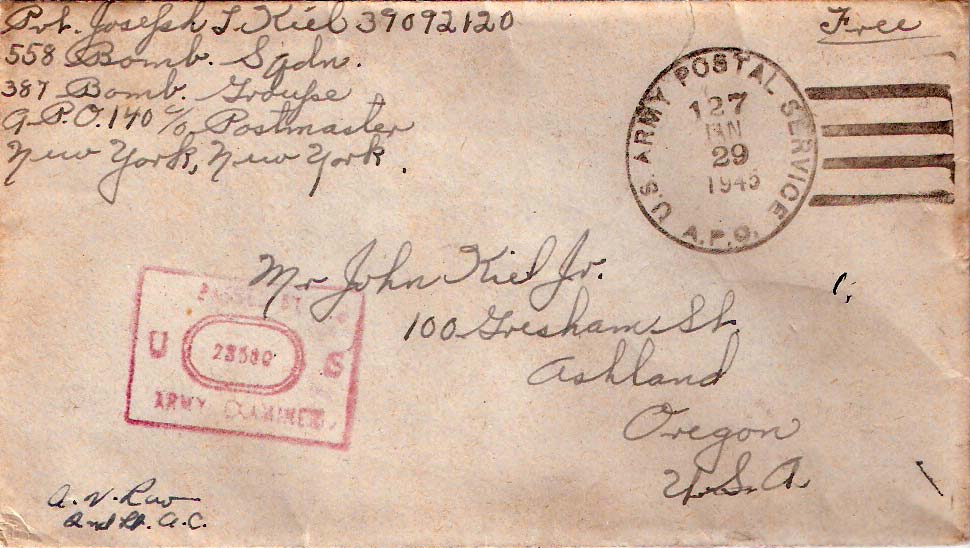 Pvt. Joseph T Kiel 39092120
558 Bomb. Sqdn.
387 Bomb. Groupe
A.P.O. 140 c/o Postmaster
New York, New York.
Free
U.S. ARMY POSTAL SERVICE
A.P.O.
127
JAN
29
1945
Mr John Kiel Jr.
100 Gresham St.
Ashland
Oregon
U.S.A.
PASSED BY
U S
ARMY EXAMINER
A. V.
2nd Lt. A.C.